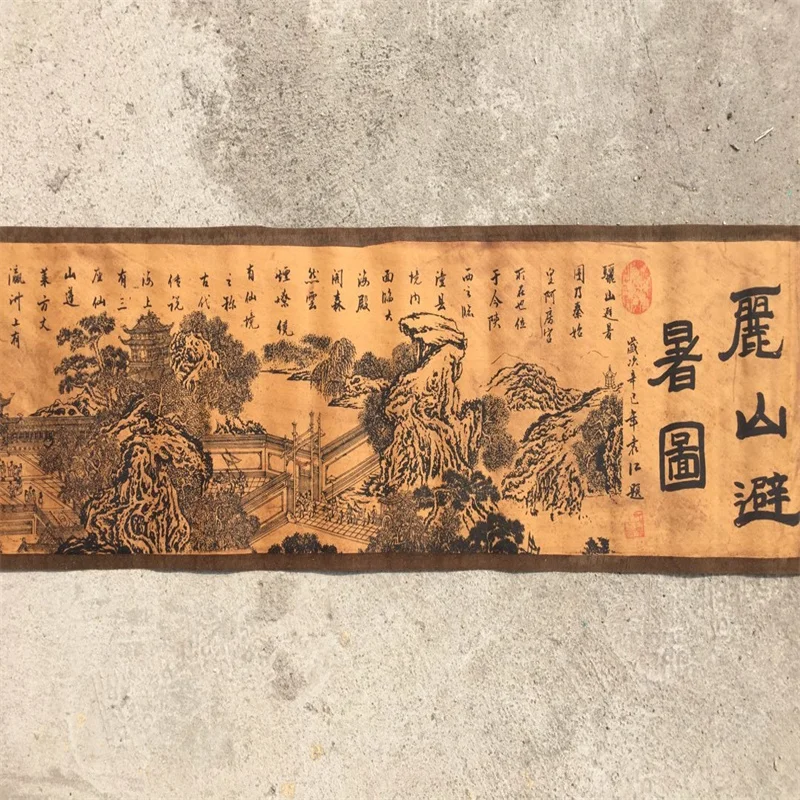 麗山避
暑圖
歲次辛巳年袁江題
驪山避暑
圖乃秦始
皇阿房宮
所在地位
于今陝
西之臨
潼縣
境内
面臨大
海殿
閣森
然雲
煙燎繞
有仙境
之稱
古代
傳說
海上
有三
座仙
山蓬
萊方丈
瀛洲上有